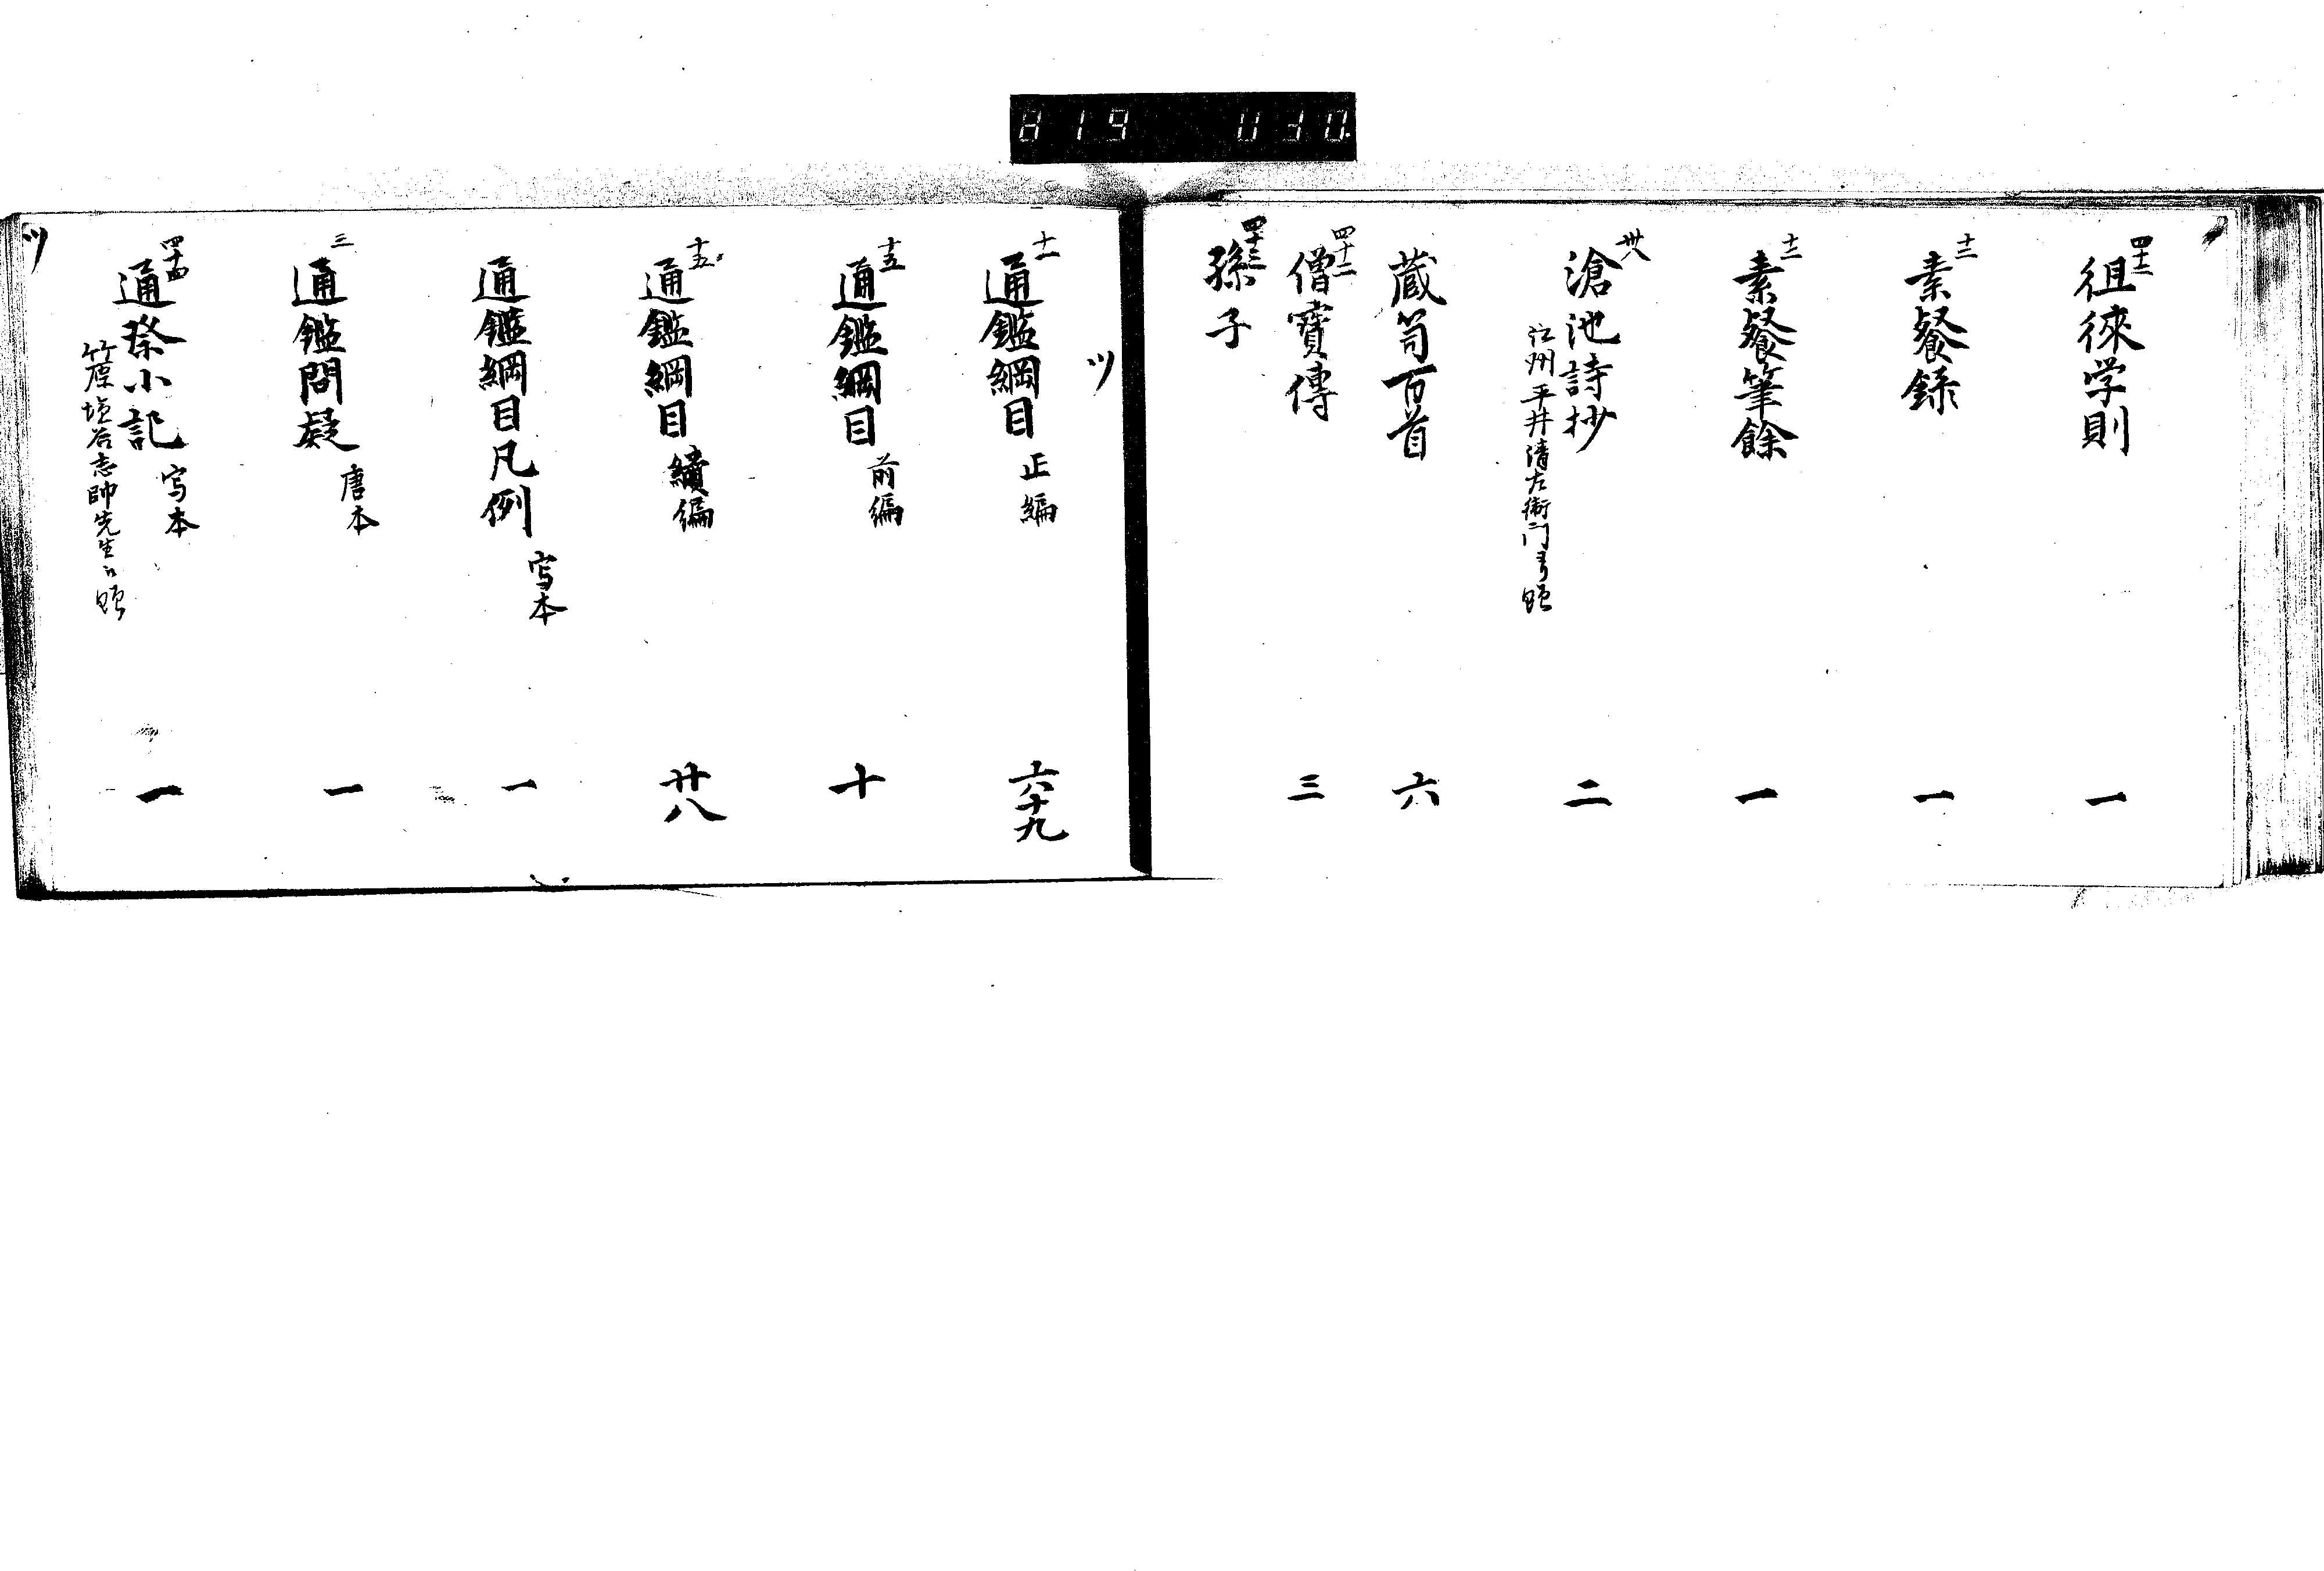 四十二
徂徠学則 一
十二
素餐録 一
十二
素餐筆餘 一
卅八
滄池詩抄 二
江州平井清左衛門ゟ贈
蔵笥百首 六
四十二
僧寶傳 三
四十三
孫子
ツ
十一
通鑑綱目 正編 六十九
十五
通鑑綱目 前編 十
十五
通鑑綱目 續編 廿八
通鑑綱目凡例 写本 一
三
通鑑問疑 唐本 一
四十四
通祭小記 写本 一
竹原塩谷志帥先生ゟ贈
ツ